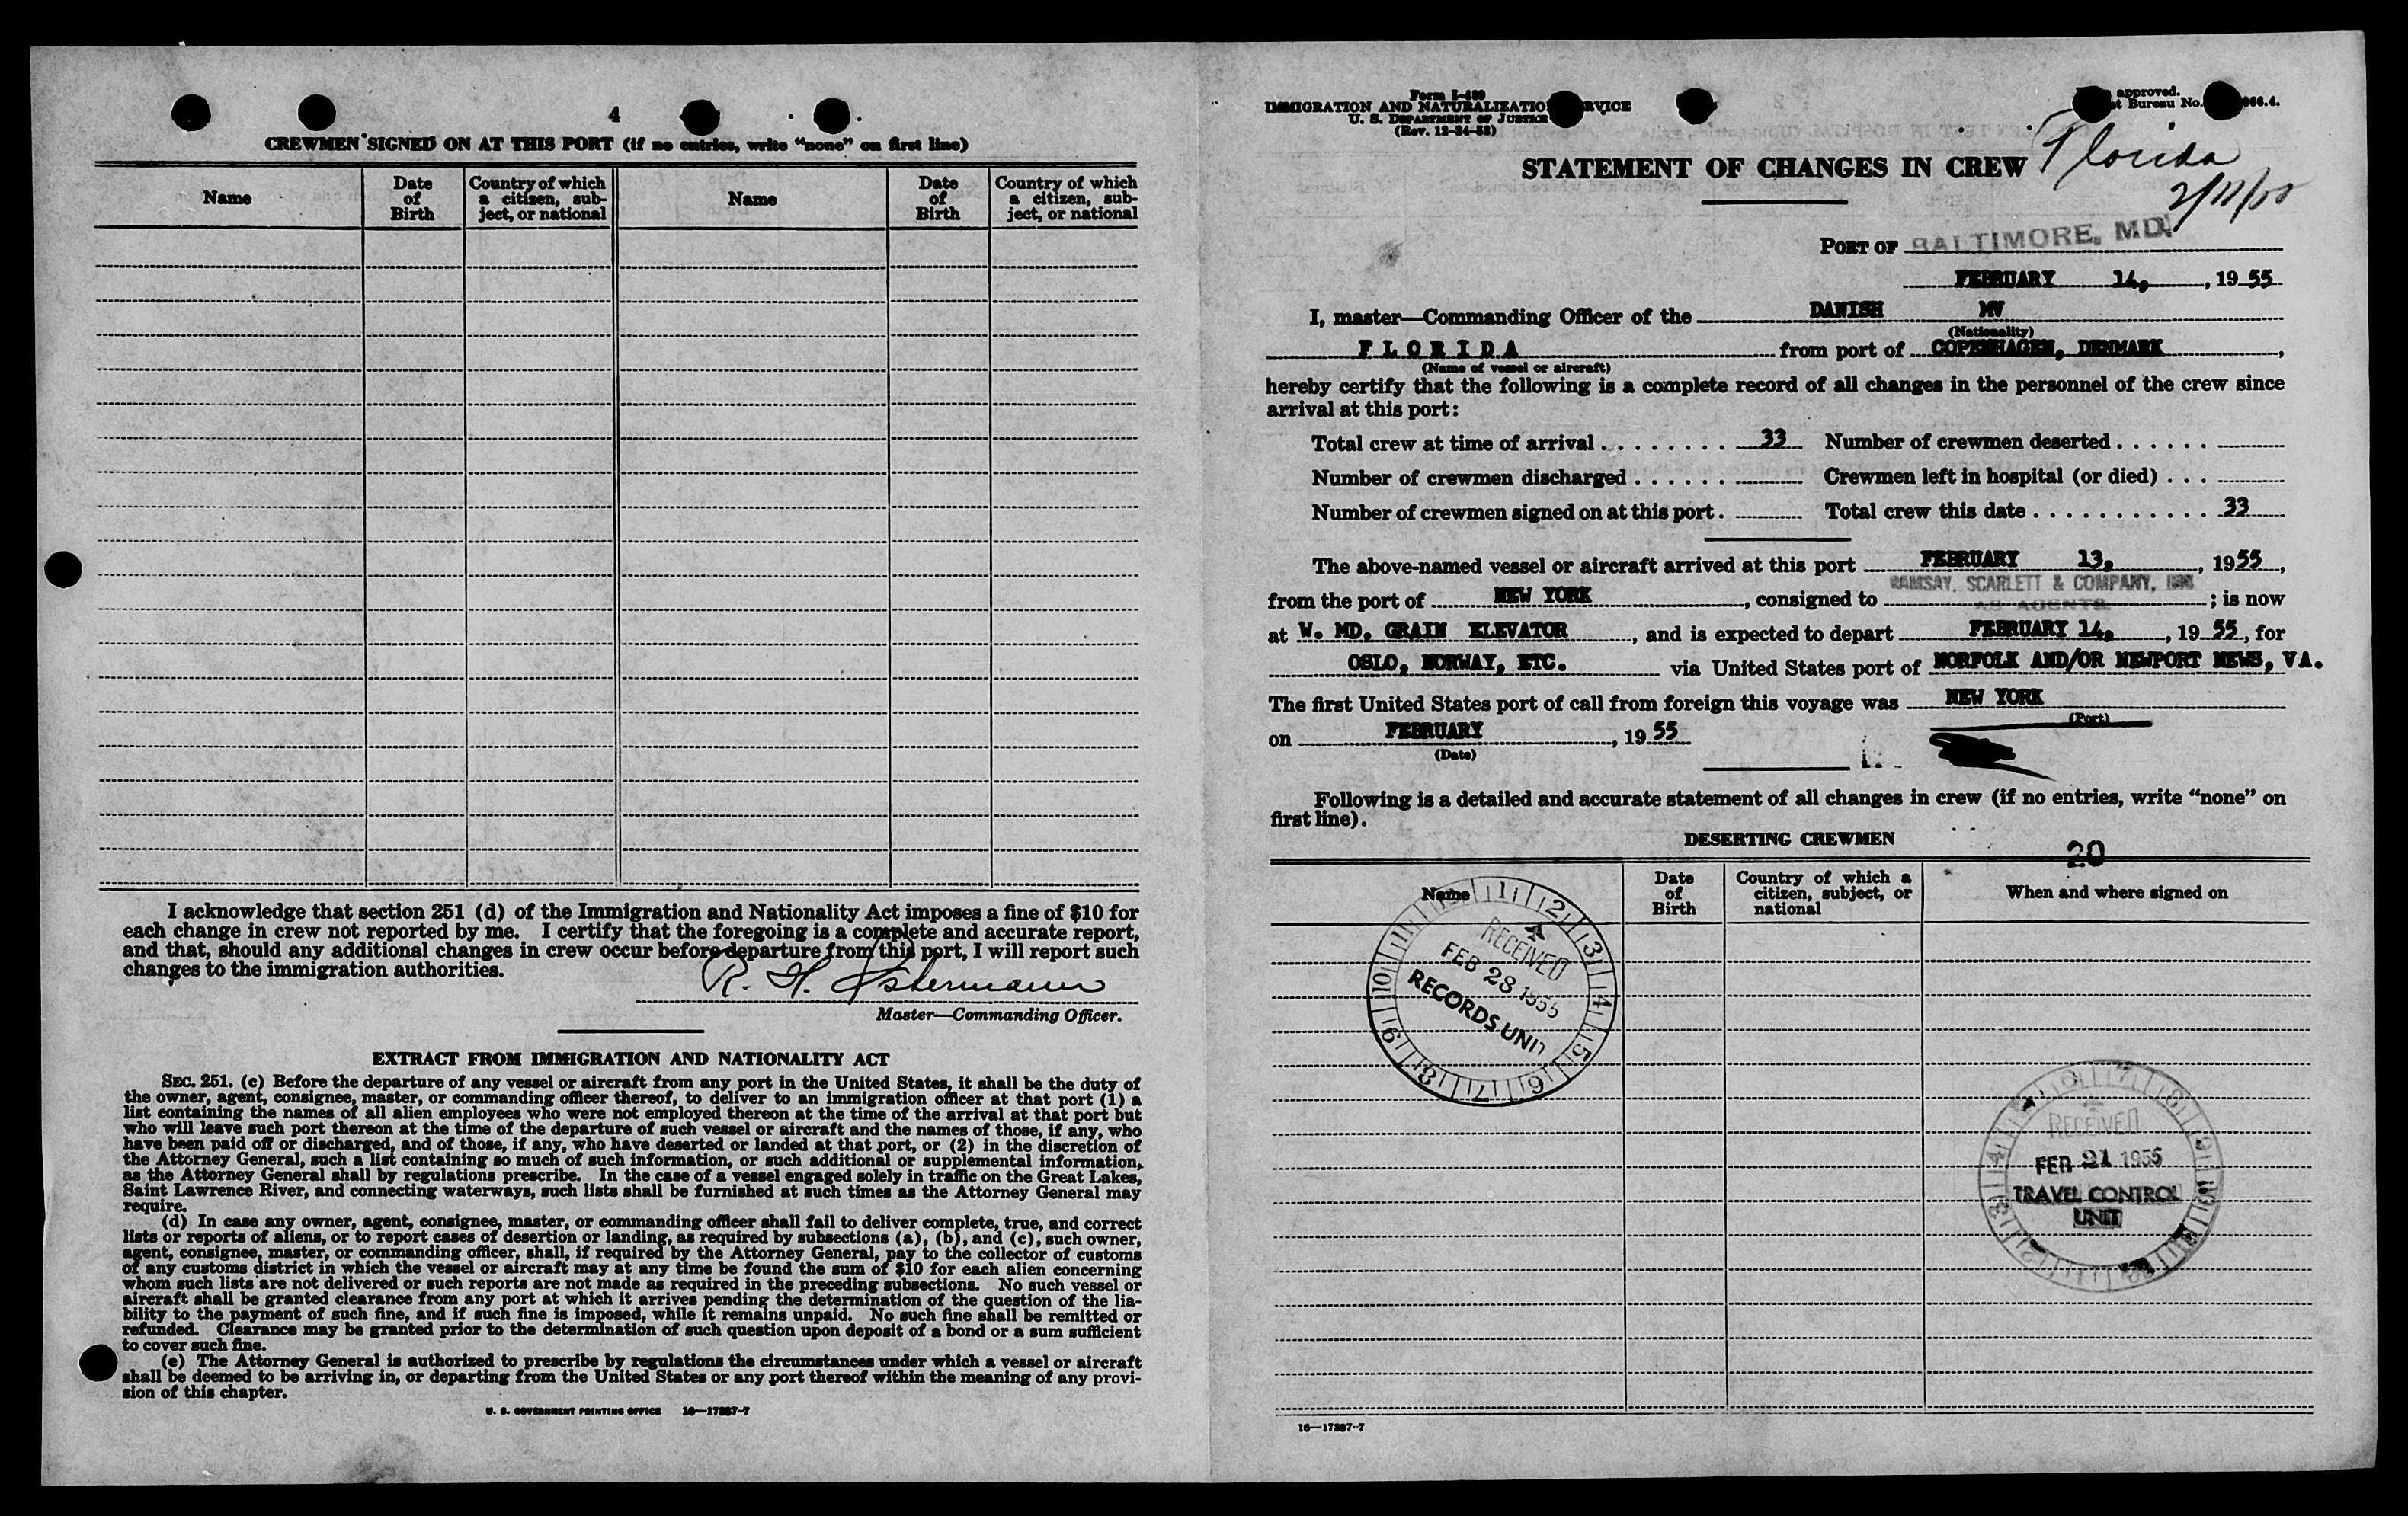 4
CREWMEN SIGNED ON AT THIS PORT (if no entries, write “none” on first line)
Name
Date of Birth
Country of which a citizen, subject, or national
Name
Date of Birth
Country of which a citizen, subject, or national
I acknowledge that section 251 (d) of the Immigration and Nationality Act imposes a fine of $10 for
each change in crew not reported by me. I certify that the foregoing is a complete and accurate report,
and that, should any additional changes in crew occur before departure from this port, I will report such
changes to the immigration authorities.
R. H. Ostermann
Master—Commanding Officer.
EXTRACT FROM IMMIGRATION AND NATIONALITY ACT
SEC. 251. (c) Before the departure of any vessel or aircraft from any port in the United States, it shall be the duty of
the owner, agent, consignee, master, or commanding officer thereof, to deliver to an immigration officer at that port (1) a
list containing the names of all alien employees who were not employed thereon at the time of the arrival at that port but
who will leave such port thereon at the time of the departure of such vessel or aircraft and the names of those, if any, who
have been paid off or discharged, and of those, if any, who have deserted or landed at that port, or (2) in the discretion of
the Attorney General, such a list containing so much of such information, or such additional or supplemental information,
as the Attorney General shall by regulations prescribe. In the case of a vessel engaged solely in traffic on the Great Lakes,
Saint Lawrence River, and connecting waterways, such lists shall be furnished at such times as the Attorney General may
require.
(d) In case any owner, agent, consignee, master, or commanding officer shall fail to deliver complete, true, and correct
lists or reports of aliens, or to report cases of desertion or landing, as required by subsections (a), (b), and (c), such owner,
agent, consignee, master, or commanding officer, shall, if required by the Attorney General, pay to the collector of customs
of any customs district in which the vessel or aircraft may at any time be found the sum of $10 for each alien concerning
whom such lists are not delivered or such reports are not made as required in the preceding subsections. No such vessel or
aircraft shall be granted clearance from any port at which it arrives pending the determination of the question of the lia-
bility to the payment of such fine, and if such fine is imposed, while it remains unpaid. No such fine shall be remitted or
refunded. Clearance may be granted prior to the determination of such question upon deposit of a bond or a sum sufficient
to cover such fine.
(e) The Attorney General is authorized to prescribe by regulations the circumstances under which a vessel or aircraft
shall be deemed to be arriving in, or departing from the United States or any port thereof within the meaning of any provi-
sion of this chapter.
U. S. GOVERNMENT PRINTING OFFICE 16—17887-7
Form I-489
IMMIGRATION AND NATURALIZATIO RVICE
U. S. DEPARTMENT OF JUSTICE
(Rev. 12-24-52)
approved.
t Bureau No. 066.4.
Florida
STATEMENT OF CHANGES IN CREW
2/11/55
PORT OF BALTIMORE, MD.
FEBRUARY 14, , 19 55
I, master—Commanding Officer of the DANISH MV
(Nationality)
FLORIDA from port of COPENHAGEN, DENMARK ,
(Name of vessel or aircraft)
hereby certify that the following is a complete record of all changes in the personnel of the crew since
arrival at this port:
Total crew at time of arrival . . . . . . . . 33 Number of crewmen deserted . . . . . .
Number of crewmen discharged . . . . . . Crewmen left in hospital (or died) . . .
Number of crewmen signed on at this port . Total crew this date . . . . . . . . . . . 33
The above-named vessel or aircraft arrived at this port FEBRUARY 13, , 19 55 ,
RAMSAY, SCARLETT & COMPANY, INC
from the port of NEW YORK , consigned to AS AGENTS ; is now
at W. MD. GRAIN ELEVATOR , and is expected to depart FEBRUARY 14, , 19 55 , for
OSLO, NORWAY, ETC. via United States port of NORFOLK AND/OR NEWPORT NEWS, VA.
The first United States port of call from foreign this voyage was NEW YORK
(Port)
on FEBRUARY , 19 55
(Date)
Following is a detailed and accurate statement of all changes in crew (if no entries, write “none” on
first line).
DESERTING CREWMEN
20
Name
Date of Birth
Country of which a citizen, subject, or national
When and where signed on
RECEIVED
FEB 28 1955
RECORDS UNIT
RECEIVED
FEB 21 1955
TRAVEL CONTROL
UNIT
16—17887-7